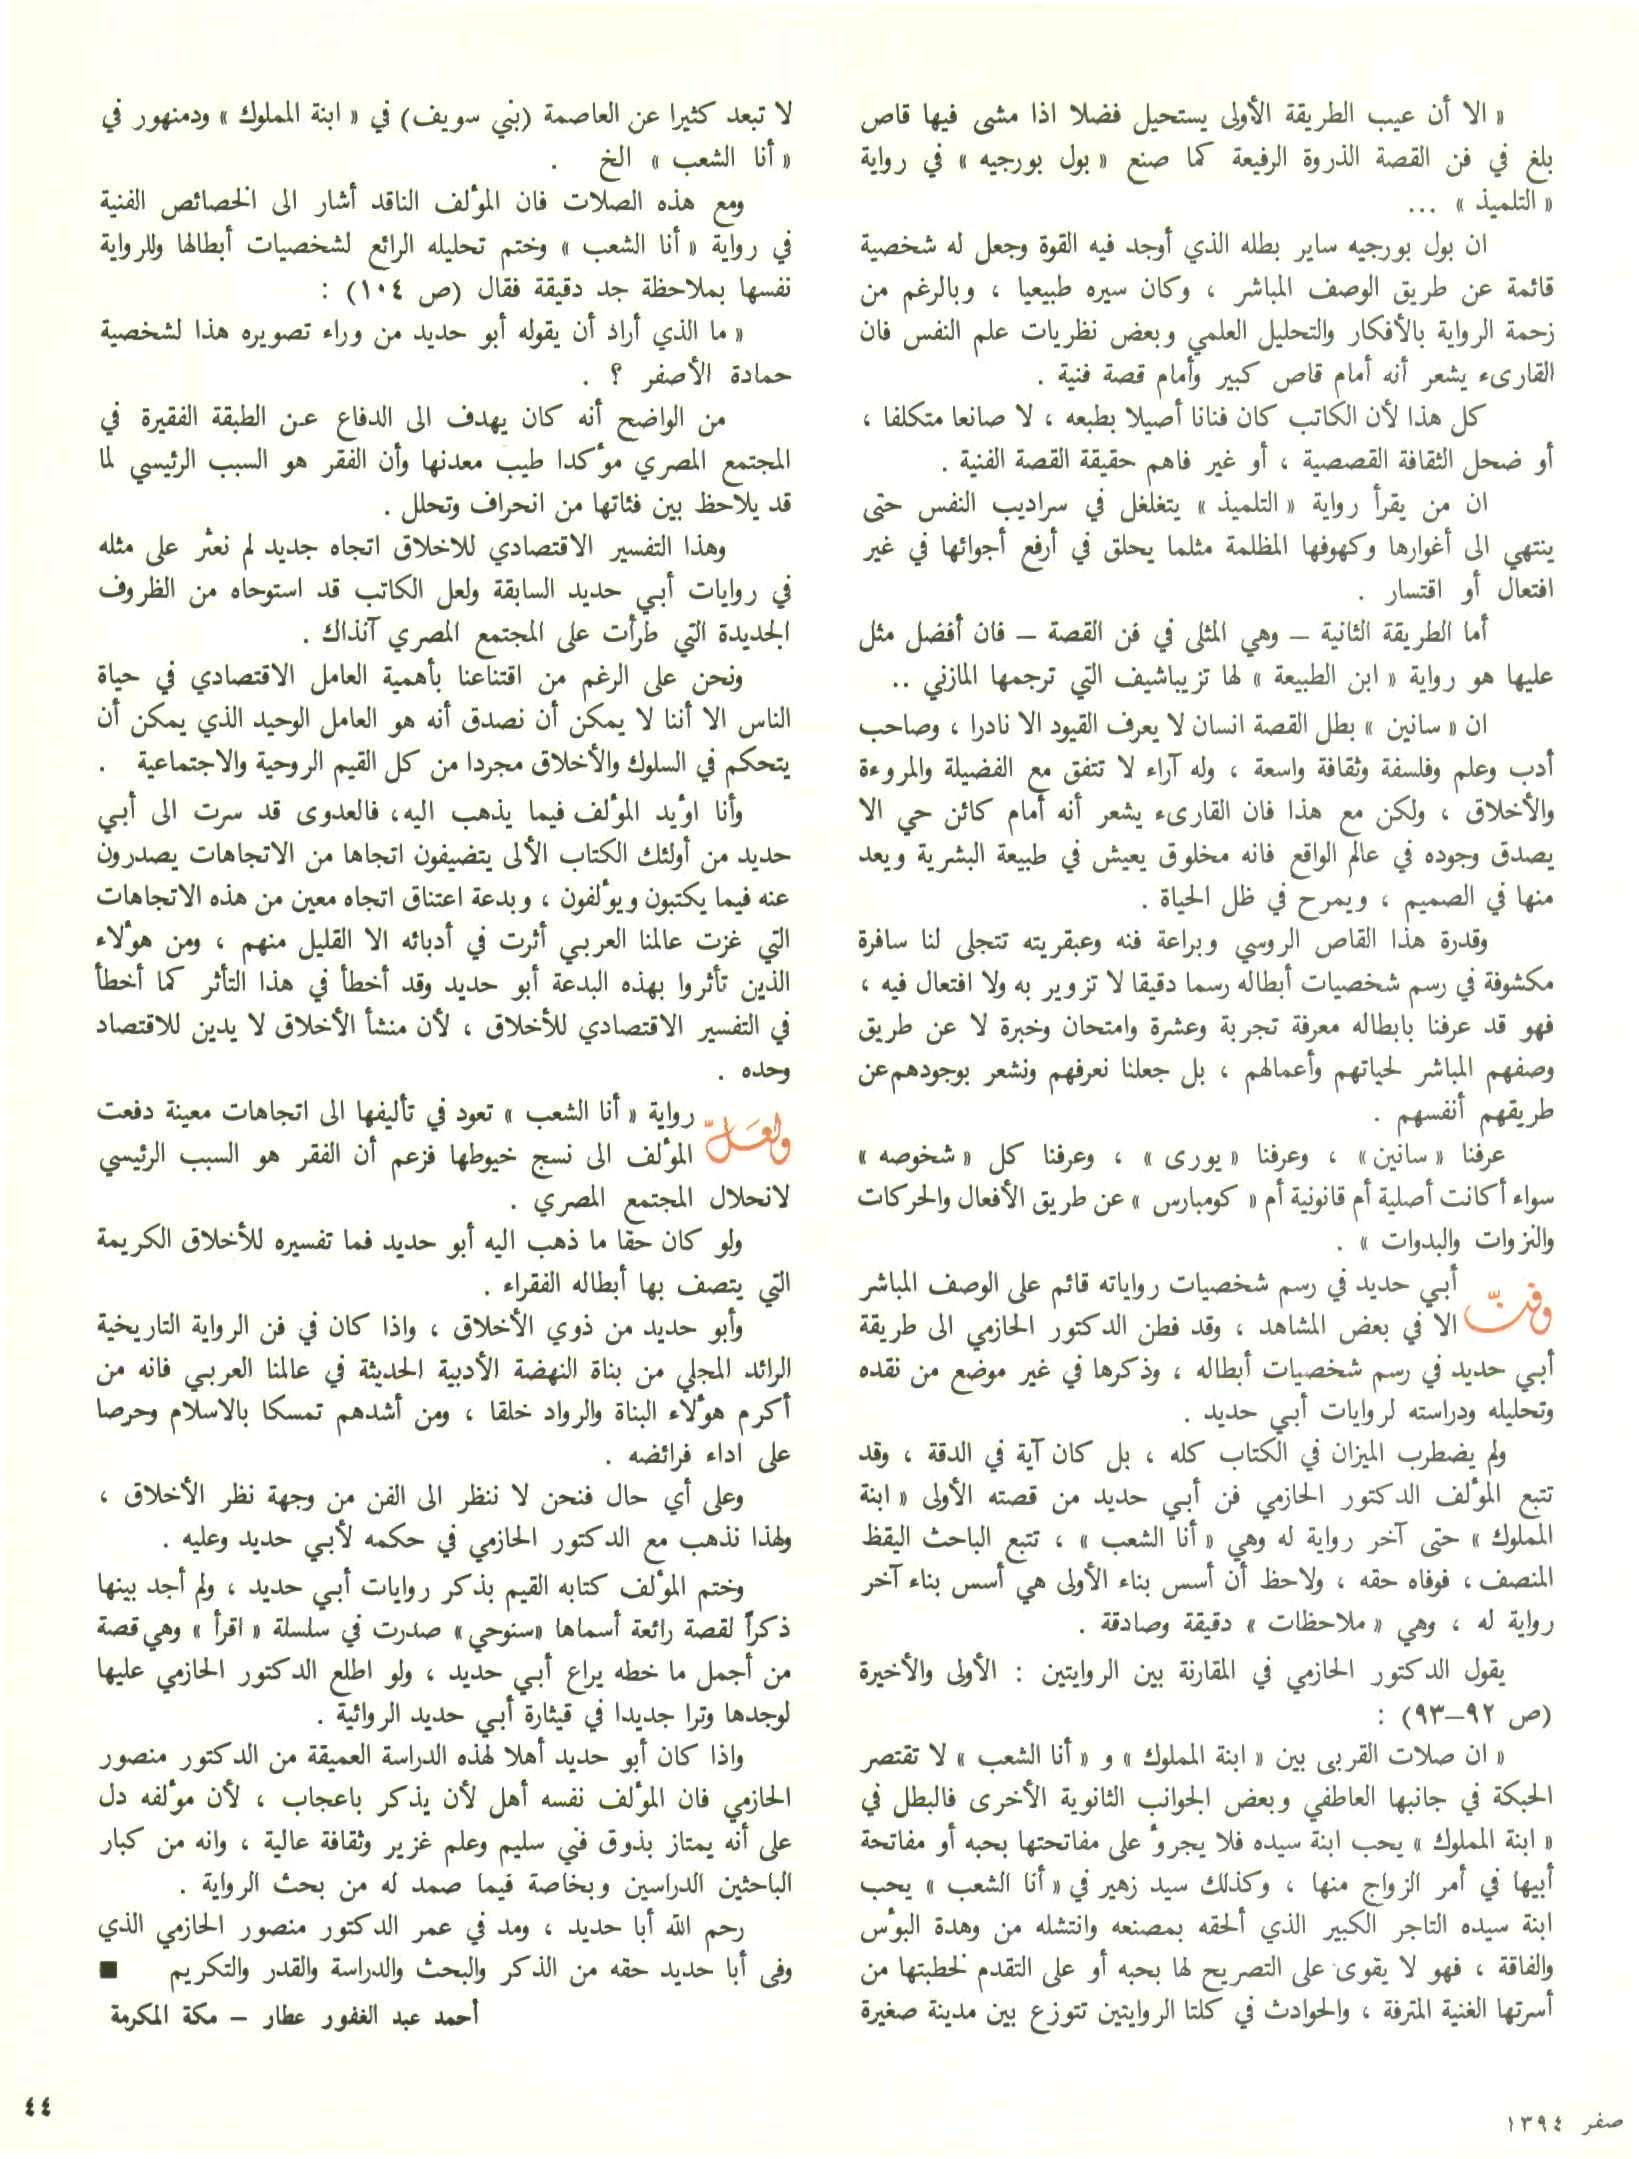 « الا أن عيب الطريقة الأولى يستحيل فضلا اذا مشى فيها قاص
بلغ في فن القصة الذروة الرفيعة كما صنع « بول بورجيه » في رواية
« التلميذ » ...
ان بول بورجيه ساير بطله الذي أوجد فيه القوة وجعل له شخصية
قائمة عن طريق الوصف المباشر ، وكان سيره طبيعيا ، وبالرغم من
زحمة الرواية بالأفكار والتحليل العلمي وبعض نظريات علم النفس فان
القارىء يشعر أنه أمام قاص كبير وأمام قصة فنية .
كل هذا لأن الكاتب كان فنانا أصيلا بطبعه ، لا صانعا متكلفا ،
أو ضحل الثقافة القصصية ، أو غير فاهم حقيقة القصة الفنية .
ان من يقرأ رواية « التلميذ » يتغلغل في سراديب النفس حتى
ينتهي الى أغوارها وكهوفها المظلمة مثلما يحلق في أرفع أجوائها في غير
افتعال أو اقتسار .
أما الطريقة الثانية – وهي المثلى في فن القصة – فان أفضل مثل
عليها هو رواية « ابن الطبيعة » لها تزيباشيف التي ترجمها المازني ..
ان « سانين » بطل القصة انسان لا يعرف القيود الا نادرا ، وصاحب
أدب وعلم وفلسفة وثقافة واسعة ، وله آراء لا تتفق مع الفضيلة والمروءة
والأخلاق ، ولكن مع هذا فان القارىء يشعر أنه أمام كائن حي الا
يصدق وجوده في عالم الواقع فانه مخلوق يعيش في طبيعة البشرية ويعد
منها في الصميم ، ويمرح في ظل الحياة .
وقدرة هذا القاص الروسي وبراعة فنه وعبقريته تتجلى لنا سافرة
مكشوفة في رسم شخصيات أبطاله رسما دقيقا لا تزوير به ولا افتعال فيه ،
فهو قد عرفنا بابطاله معرفة تجربة وعشرة وامتحان وخبرة لا عن طريق
وصفهم المباشر لحياتهم وأعمالهم ، بل جعلنا نعرفهم ونشعر بوجودهم عن
طريقهم أنفسهم .
عرفنا « سانين» ، وعرفنا « يورى » ، وعرفنا كل « شخوصه »
سواء أكانت أصلية أم قانونية أم « كومبارس » عن طريق الأفعال والحركات
والنزوات والبدوات » .
وفنّ أبي حديد في رسم شخصيات رواياته قائم على الوصف المباشر
الا في بعض المشاهد ، وقد فطن الدكتور الحازمي الى طريقة
أبي حديد في رسم شخصيات أبطاله ، وذكرها في غير موضع من نقده
وتحليله ودراسته لروايات أبي حديد .
ولم يضطرب الميزان في الكتاب كله ، بل كان آية في الدقة ، وقد
تتبع المؤلف الدكتور الحازمي فن أبي حديد من قصته الأولى « ابنة
المملوك » حتى آخر رواية له وهي « أنا الشعب » ، تتبع الباحث اليقظ
المنصف ، فوفاه حقه ، ولاحظ أن أسس بناء الأولى هي أسس بناء آخر
رواية له ، وهي « ملاحظات » دقيقة وصادقة .
يقول الدكتور الحازمي في المقارنة بين الروايتين : الأولى والأخيرة
(ص ٩٢–٩٣) :
« ان صلات القربى بين « ابنة المملوك » و « أنا الشعب » لا تقتصر
الحبكة في جانبها العاطفي وبعض الجوانب الثانوية الأخرى فالبطل في
« ابنة المملوك » يحب ابنة سيده فلا يجرؤ على مفاتحتها بحبه أو مفاتحة
أبيها في أمر الزواج منها ، وكذلك سيد زهير في « أنا الشعب » يحب
ابنة سيده التاجر الكبير الذي ألحقه بمصنعه وانتشله من وهدة البؤس
والفاقة ، فهو لا يقوى على التصريح لها بحبه أو على التقدم لخطبتها من
أسرتها الغنية المترفة ، والحوادث في كلتا الروايتين تتوزع بين مدينة صغيرة
لا تبعد كثيرا عن العاصمة (بني سويف) في « ابنة المملوك » ودمنهور في
« أنا الشعب » الخ .
ومع هذه الصلات فان المؤلف الناقد أشار الى الخصائص الفنية
في رواية « أنا الشعب » وختم تحليله الرائع لشخصيات أبطالها وللرواية
نفسها بملاحظة جد دقيقة فقال (ص ١٠٤) :
« ما الذي أراد أن يقوله أبو حديد من وراء تصويره هذا لشخصية
حمادة الأصفر ؟ .
من الواضح أنه كان يهدف الى الدفاع عن الطبقة الفقيرة في
المجتمع المصري مؤكدا طيب معدنها وأن الفقر هو السبب الرئيسي لما
قد يلاحظ بين فئاتها من انحراف وتحلل .
وهذا التفسير الاقتصادي للاخلاق اتجاه جديد لم نعثر على مثله
في روايات أبي حديد السابقة ولعل الكاتب قد استوحاه من الظروف
الجديدة التي طرأت على المجتمع المصري آنذاك .
ونحن على الرغم من اقتناعنا بأهمية العامل الاقتصادي في حياة
الناس الا أننا لا يمكن أن نصدق أنه هو العامل الوحيد الذي يمكن أن
يتحكم في السلوك والأخلاق مجردا من كل القيم الروحية والاجتماعية .
وأنا اؤيد المؤلف فيما يذهب اليه، فالعدوى قد سرت الى أبي
حديد من أولئك الكتاب الألى يتضيفون اتجاها من الاتجاهات يصدرون
عنه فيما يكتبون ويؤلفون ، وبدعة اعتناق اتجاه معين من هذه الاتجاهات
التي غزت عالمنا العربي أثرت في أدبائه الا القليل منهم ، ومن هؤلاء
الذين تأثروا بهذه البدعة أبو حديد وقد أخطأ في هذا التأثر كما أخطأ
في التفسير الاقتصادي للأخلاق ، لأن منشأ الأخلاق لا يدين للاقتصاد
وحده .
ولعلّ رواية « أنا الشعب » تعود في تأليفها الى اتجاهات معينة دفعت
المؤلف الى نسج خيوطها فزعم أن الفقر هو السبب الرئيسي
لانحلال المجتمع المصري .
ولو كان حقا ما ذهب اليه أبو حديد فما تفسيره للأخلاق الكريمة
التي يتصف بها أبطاله الفقراء .
وأبو حديد من ذوي الأخلاق ، واذا كان في فن الرواية التاريخية
الرائد المجلي من بناة النهضة الأدبية الحديثة في عالمنا العربي فانه من
أكرم هؤلاء البناة والرواد خلقا ، ومن أشدهم تمسكا بالاسلام وحرصا
على اداء فرائضه .
وعلى أي حال فنحن لا ننظر الى الفن من وجهة نظر الأخلاق ،
ولهذا نذهب مع الدكتور الحازمي في حكمه لأبي حديد وعليه .
وختم المؤلف كتابه القيم بذكر روايات أبي حديد ، ولم أجد بينها
ذكراً لقصة رائعة أسماها «سنوحي» صدرت في سلسلة « اقرأ » وهي قصة
من أجمل ما خطه يراع أبي حديد ، ولو اطلع الدكتور الحازمي عليها
لوجدها وترا جديدا في قيثارة أبي حديد الروائية .
واذا كان أبو حديد أهلا لهذه الدراسة العميقة من الدكتور منصور
الحازمي فان المؤلف نفسه أهل لأن يذكر باعجاب ، لأن مؤلفه دل
على أنه يمتاز بذوق فني سليم وعلم غزير وثقافة عالية ، وانه من كبار
الباحثين الدراسين وبخاصة فيما صمد له من بحث الرواية .
رحم الله أبا حديد ، ومد في عمر الدكتور منصور الحازمي الذي
وفى أبا حديد حقه من الذكر والبحث والدراسة والقدر والتكريم ■
أحمد عبد الغفور عطار – مكة المكرمة
صفر ١٣٩٤
٤٤